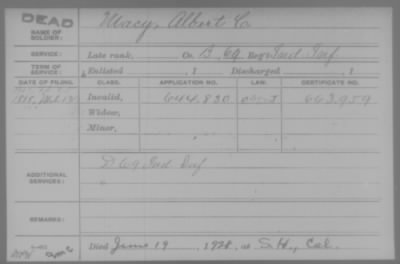 DEAD
NAME OF SOLDIER: Macy, Albert C.
SERVICE: Late rank, Co. B, 69 Reg't Ind. Inf.
TERM OF SERVICE: Enlisted , 1 Discharged , 1
DATE OF FILING. CLASS. APPLICATION NO. LAW. CERTIFICATE NO.
1888, Invalid, 644.830 663.959
Widow,
Minor,
ADDITIONAL SERVICES: 69 Ind Inf
"
REMARKS:
Died June 19, 1928, at S.H., Cal.